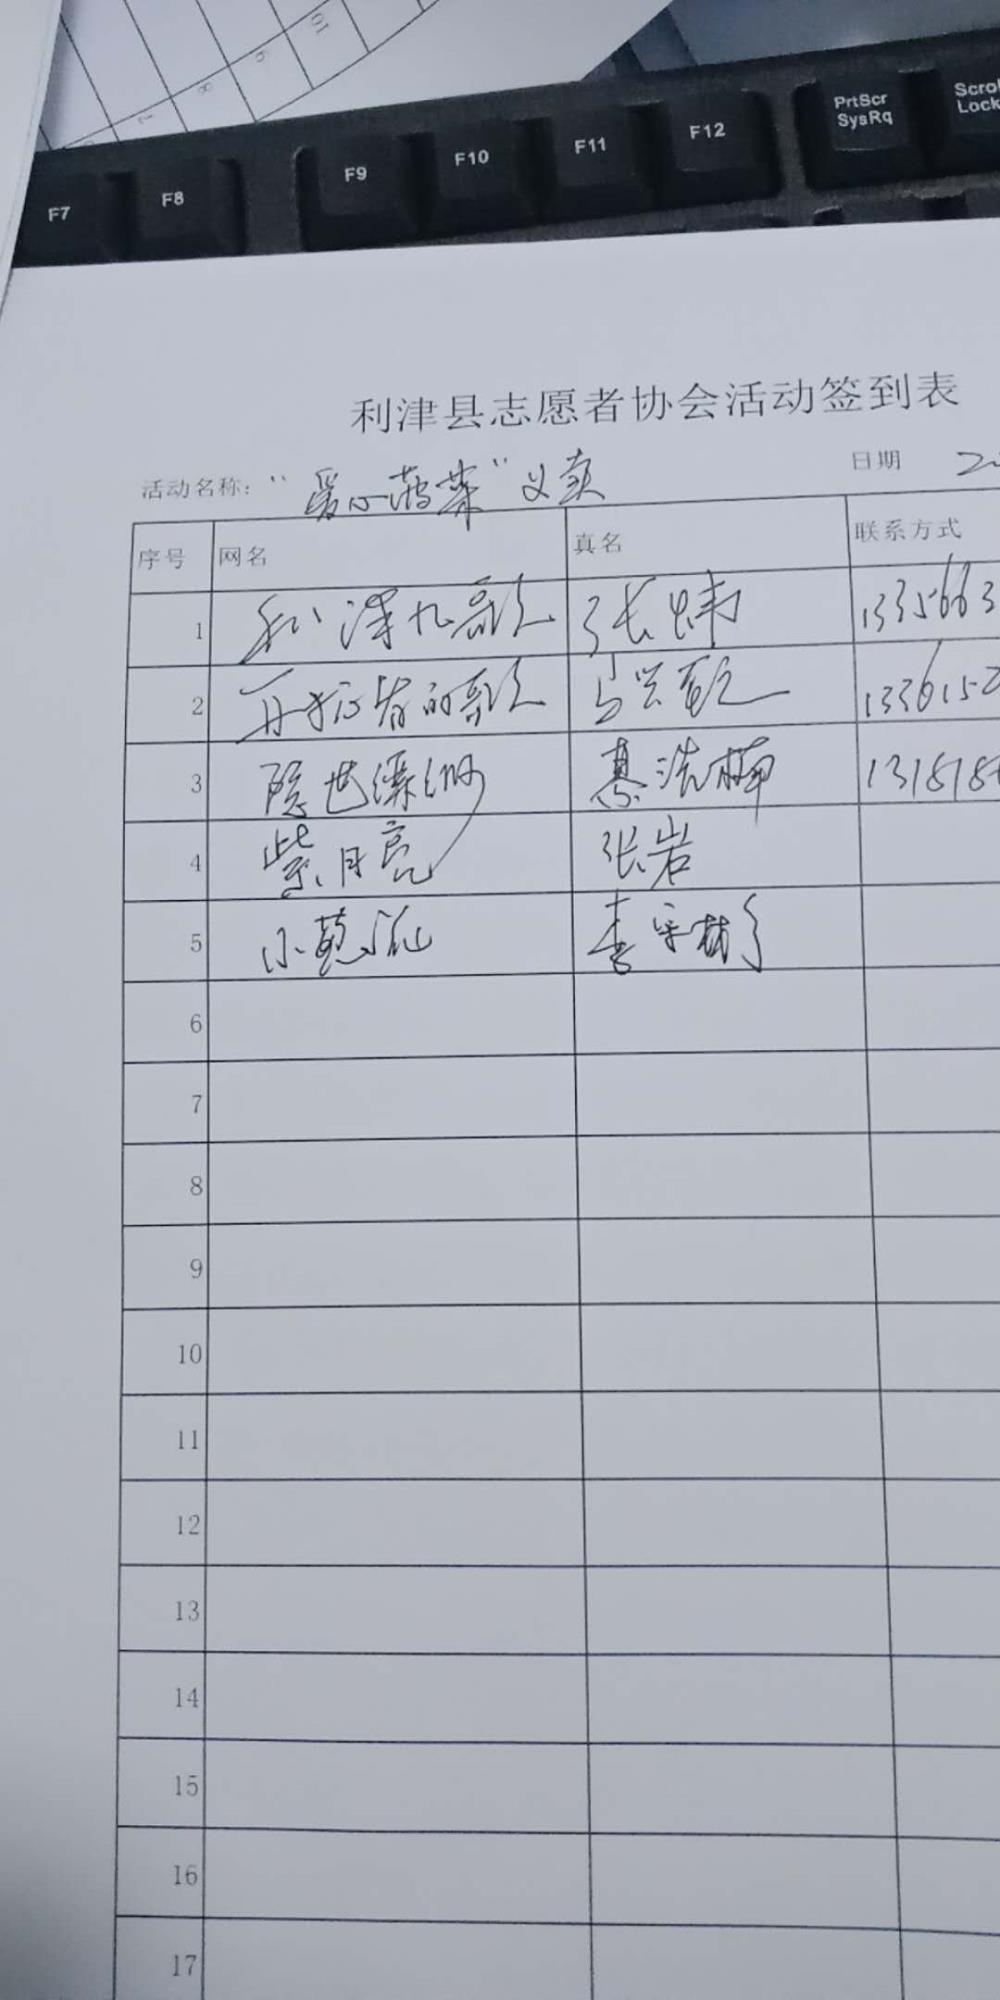 10
9
8
7
PrtScr
SysRq
Scrol
Lock
F7 F8 F9 F10 F11 F12
利津县志愿者协会活动签到表
活动名称：“爱心菠菜”义卖 日期 20
序号 网名 真名 联系方式
1 利津九哥 张炜 1335663
2 开拓者的歌 1336152
3 隐世 綦浩楠 131818
4 紫月亮 张岩
5 小葱 李
6
7
8
9
10
11
12
13
14
15
16
17